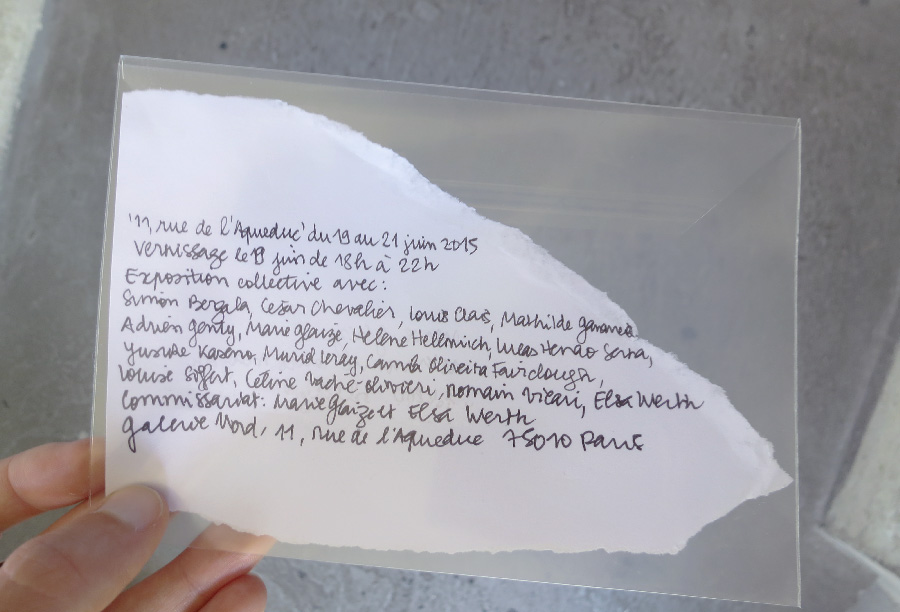 '11, rue de l'Aqueduc' du 19 au 21 juin 2015
Vernissage le juin de 18h à 22h
Exposition collective avec:
Simon Bergala, Cesar Chevalier, Louis Clais, Mathilde
Adrien Genty, Marie Glaize, Helene Hellmich, Lucas Henao Serna,
Yusuke Kaseno, Muriel Leray, Camila Oliveira Fairclough,
Louise Siffert, Céline Vaché-Olivieri, Romain Vicari, Elsa Werth
Commissariat: Marie Glaize et Elsa Werth
Galerie Nord, 11, rue de l'Aqueduc 75010 Paris